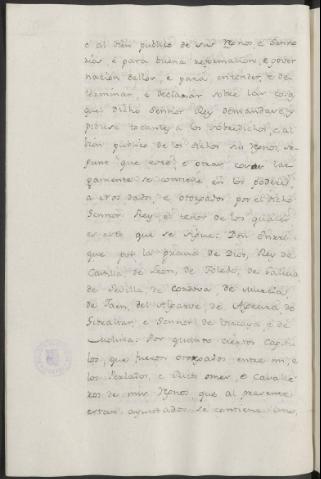 e al bien publico de sus Regnos, e Senno
rias, e para buena reformacion, e gover
nacion dellos, e para entender, e de
terminar, e declarar sobre las cosas
que dicho Sennor Rey demandare, y
pidiese tocante a los sobredichos, e al
bien publico de los dichos sus Regnos, se
gunt que esto, e otras cosas lar
gamente se contiene en los poderes
a ellos dados, e otorgados por el dicho
Sennor Rey, el tenor de los quales
es este que se sigue: Don Enrri
que por la gracia de Dios, Rey de
Castilla, de Leon, de Toledo, de Galicia
de Sevilla, de Cordova, de Murcia,
de Jaen, del Algarve, de Algecira, de
Gibraltar, e Sennor de Vizcaya, e de
Molina: Por quanto ciertos Capitu
los, que fueron otorgados entre mi, e
los Perlados, e Ricos omes, e Cavalle
ros de mis Regnos que al presente
estan ayuntados se contiene